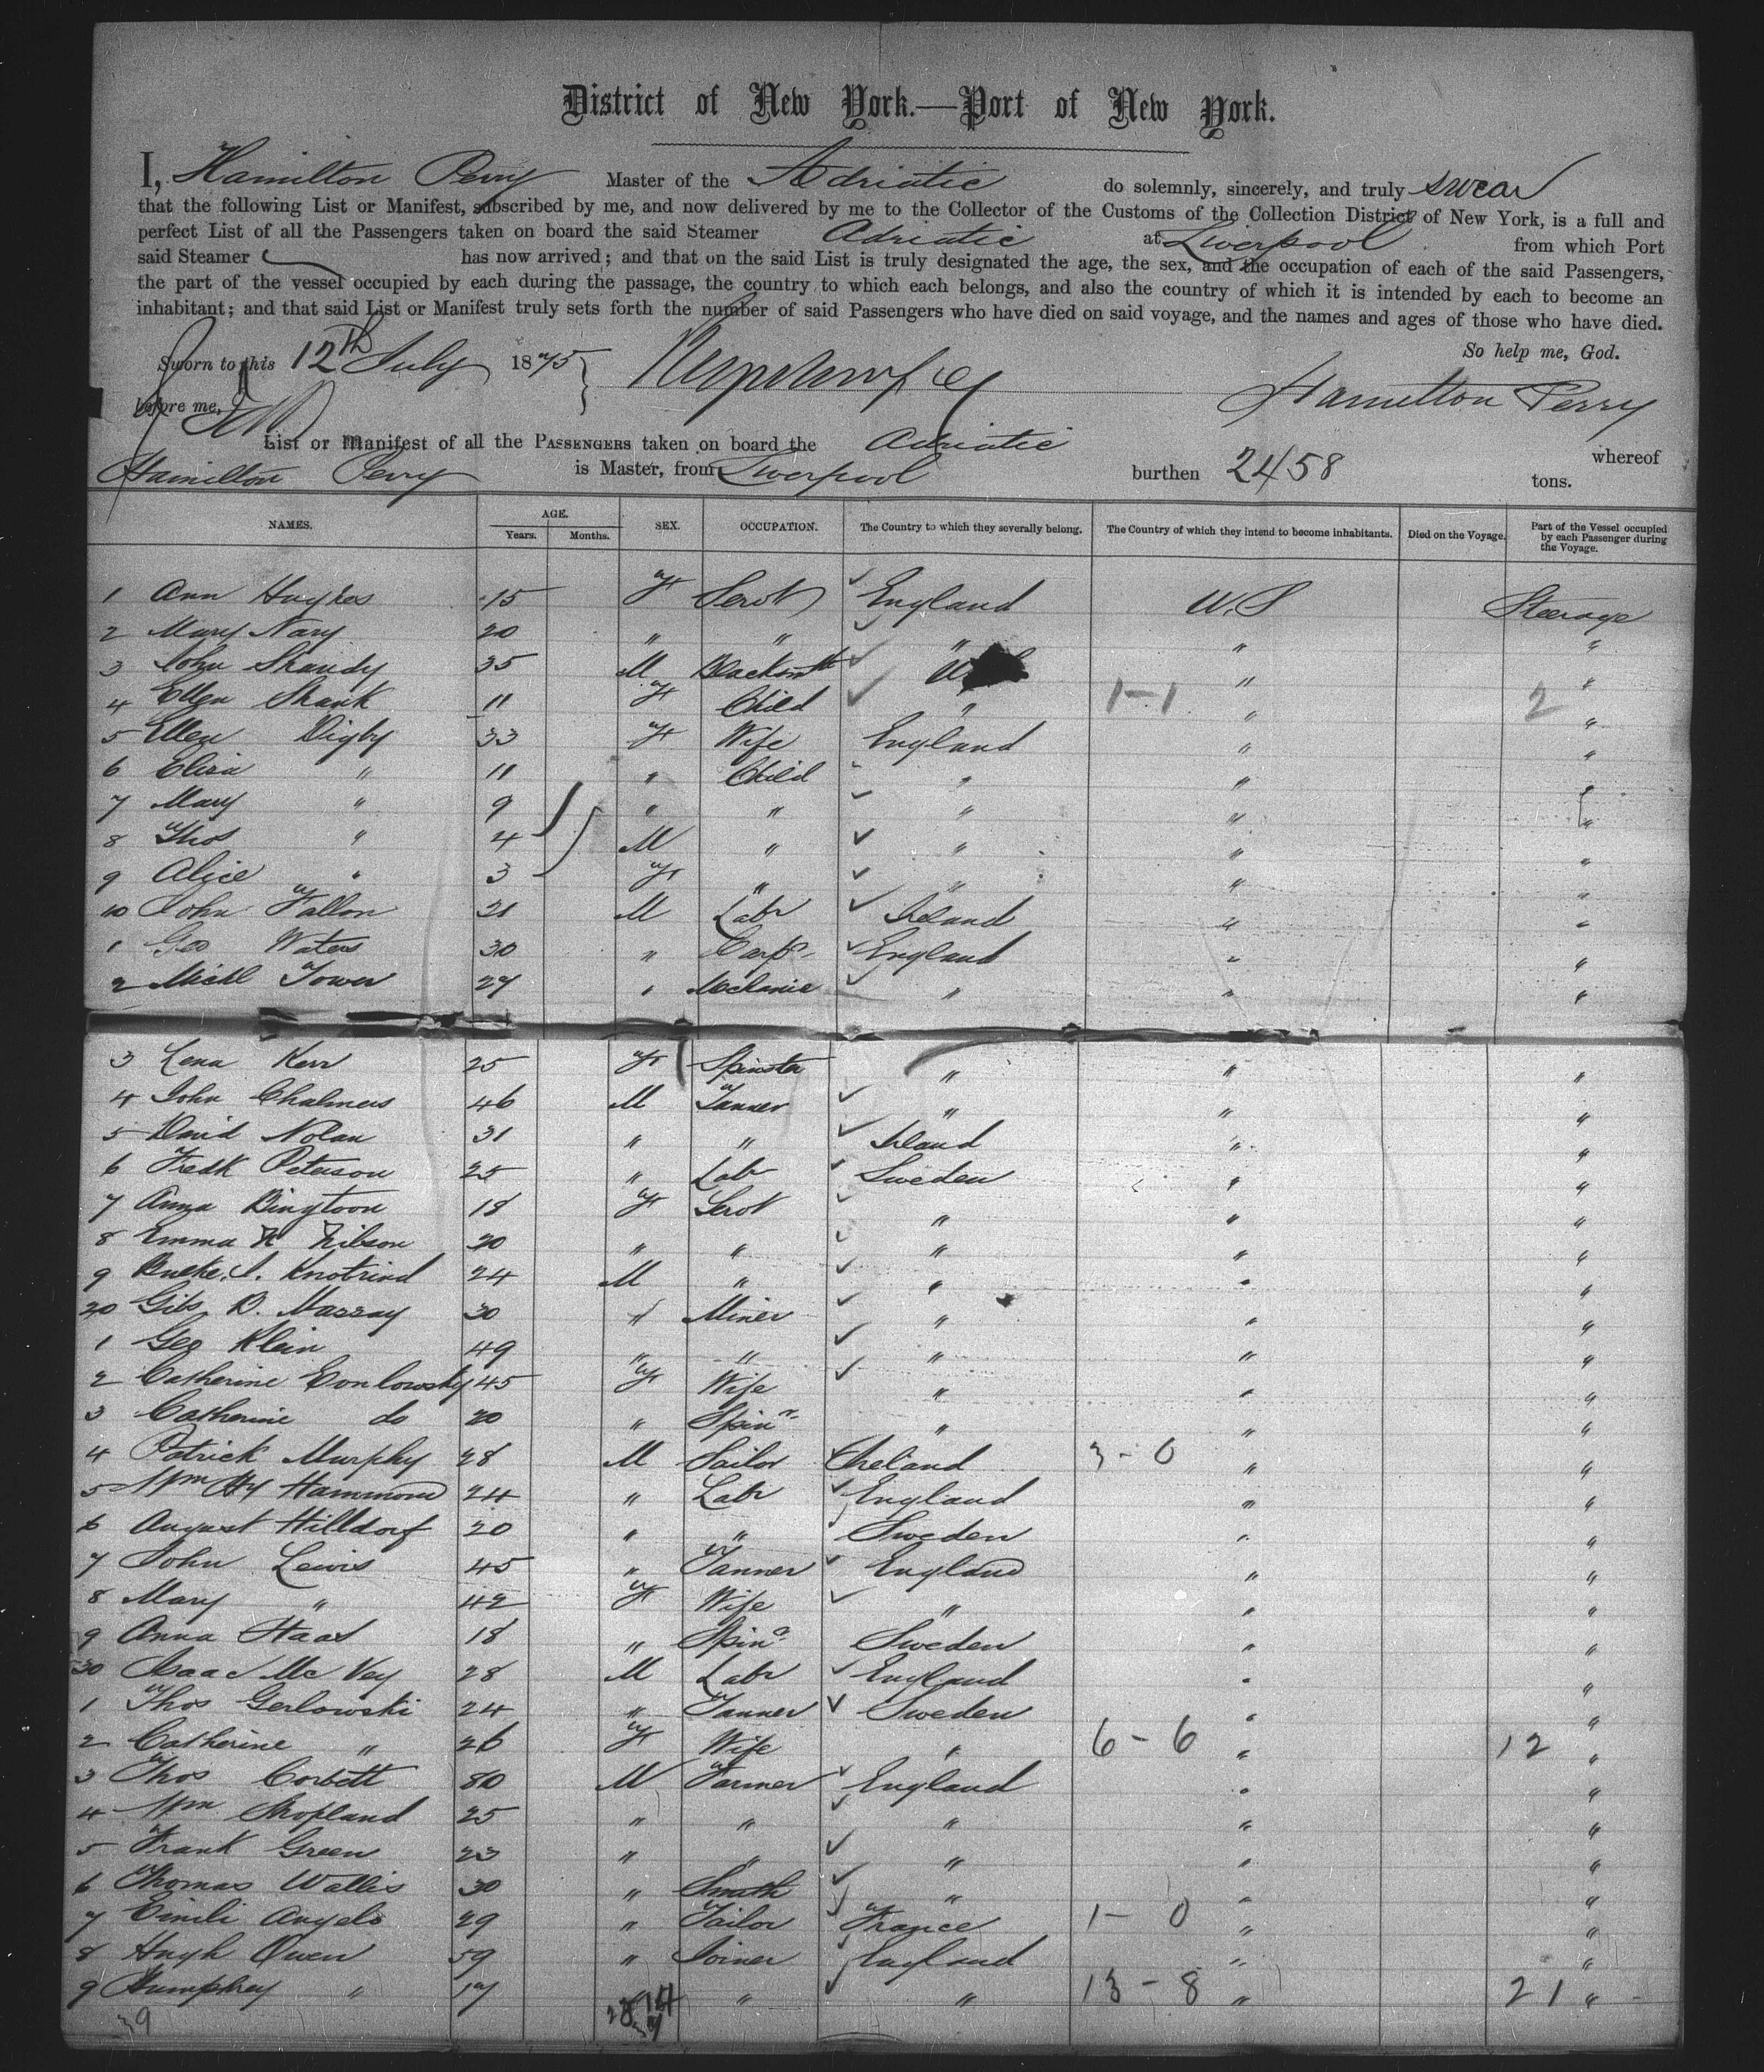 District of New York.—Port of New York.
I, Hamilton Perry Master of the Adriatic do solemnly, sincerely, and truly swear
that the following List or Manifest, subscribed by me, and now delivered by me to the Collector of the Customs of the Collection District of New York, is a full and
perfect List of all the Passengers taken on board the said Steamer Adriatic at Liverpool from which Port
said Steamer has now arrived; and that on the said List is truly designated the age, the sex, and the occupation of each of the said Passengers,
the part of the vessel occupied by each during the passage, the country to which each belongs, and also the country of which it is intended by each to become an
inhabitant; and that said List or Manifest truly sets forth the number of said Passengers who have died on said voyage, and the names and ages of those who have died.
So help me, God.
Sworn to this 12th July 1875
before me, Hamilton Perry
List or Manifest of all the PASSENGERS taken on board the Adriatic whereof
Hamilton Perry is Master, from Liverpool burthen 2458 tons.
NAMES. AGE. Years. Months. SEX. OCCUPATION. The Country to which they severally belong. The Country of which they intend to become inhabitants. Died on the Voyage. Part of the Vessel occupied by each Passenger during the Voyage.
1 Ann Hughes 15 F Servt England U.S Steerage
2 Mary Nary 20 " " " " "
3 John Shandy 35 M Blacksmth U " "
4 Ellen Shank 11 F Child " 1-1 " 2 "
5 Ellen Digby 33 F Wife England " "
6 Eliza " 11 " Child " " "
7 Mary " 9 " " " " "
8 Thos " 4 M " " " "
9 Alice " 3 F " " " "
10 John Fallon 21 M Labr Ireland " "
1 Geo Waters 30 " Carpr England " "
2 Michl Tower 27 " Mechanic " " "
3 Lena Kerr 25 F Spinster " " "
4 John Chalmers 46 M Tanner " " "
5 David Nolan 31 " " Ireland " "
6 Fredk Peterson 25 " Labr Sweden " "
7 Anna Bingtoon 18 F Servt " " "
8 Emma K Nilson 20 " " " " "
9 24 M " " " "
20 Gibs B. Massay 30 " Miner " " "
1 Geo Klein 49 " " " " "
2 Catherine Conlowsky 45 F Wife " " "
3 Catherine do 20 " Spinr " " "
4 Patrick Murphy 28 M Sailor Ireland 3-0 " "
5 Wm Hy Hammond 24 " Labr England " "
6 August Hilldorf 20 " " Sweden " "
7 John Lewis 45 " Tanner England " "
8 Mary " 42 F Wife " " "
9 Anna Haas 18 " Spinr Sweden " "
30 Isaac McVey 28 M Labr England " "
1 Thos Gerlowski 24 " Tanner Sweden " "
2 Catherine " 26 F Wife " 6-6 " 12 "
3 Thos Corbett 30 M Farmer England " "
4 Wm Shopland 25 " " " " "
5 Frank Green 23 " " " " "
6 Thomas Wallis 30 " Smith " " "
7 Emili Angelo 29 " Tailor France 1-0 " "
8 Hugh Owen 59 " Joiner England " "
9 Humphrey " 17 " " " 13-8 " 21 "
39